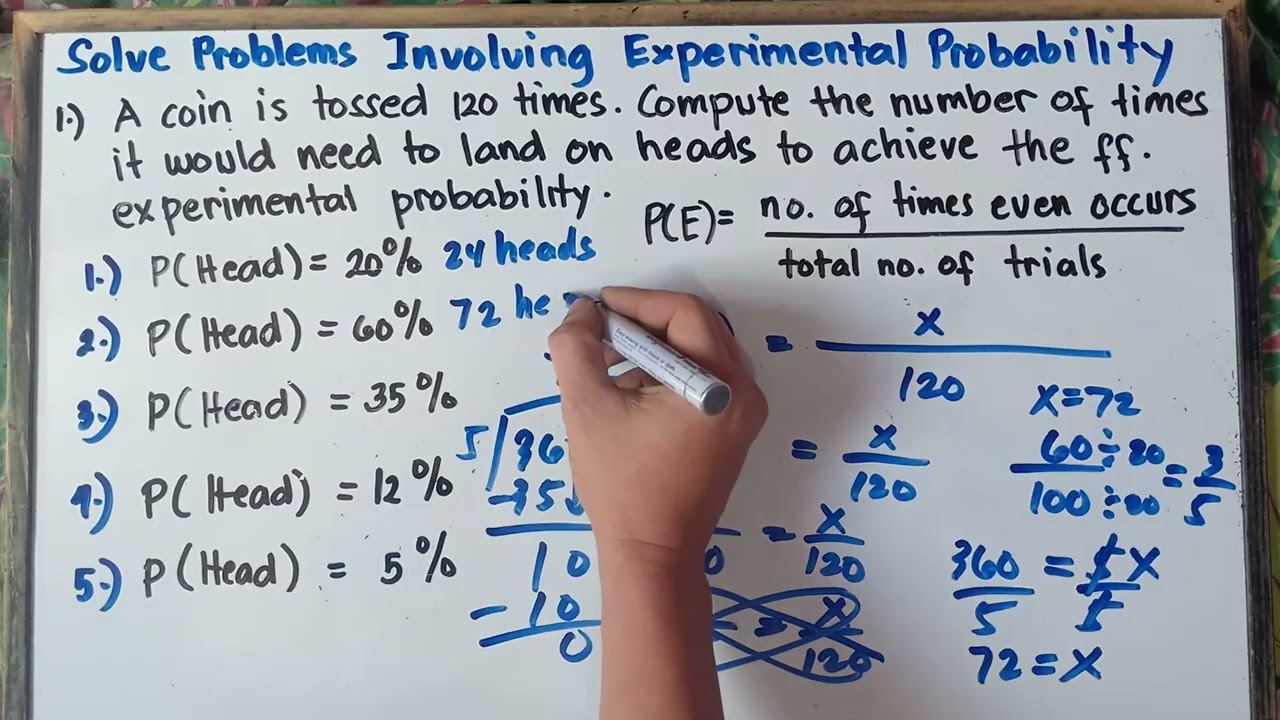 Solve Problems Involving Experimental Probability
1.) A coin is tossed 120 times. Compute the number of times
it would need to land on heads to achieve the ff.
experimental probability.
P(E)= no. of times even occurs
total no. of trials
1.) P(Head) = 20% 24 heads
2.) P(Head) = 60% 72 he
3.) P(Head) = 35%
4.) P(Head) = 12%
5.) P(Head) = 5%
5 36
-35
10
-10
0
= x
120
x=72
= x
120
60÷20 = 3
100÷20 5
= x
120
= x
120
360 = 5x
5 5
72=x